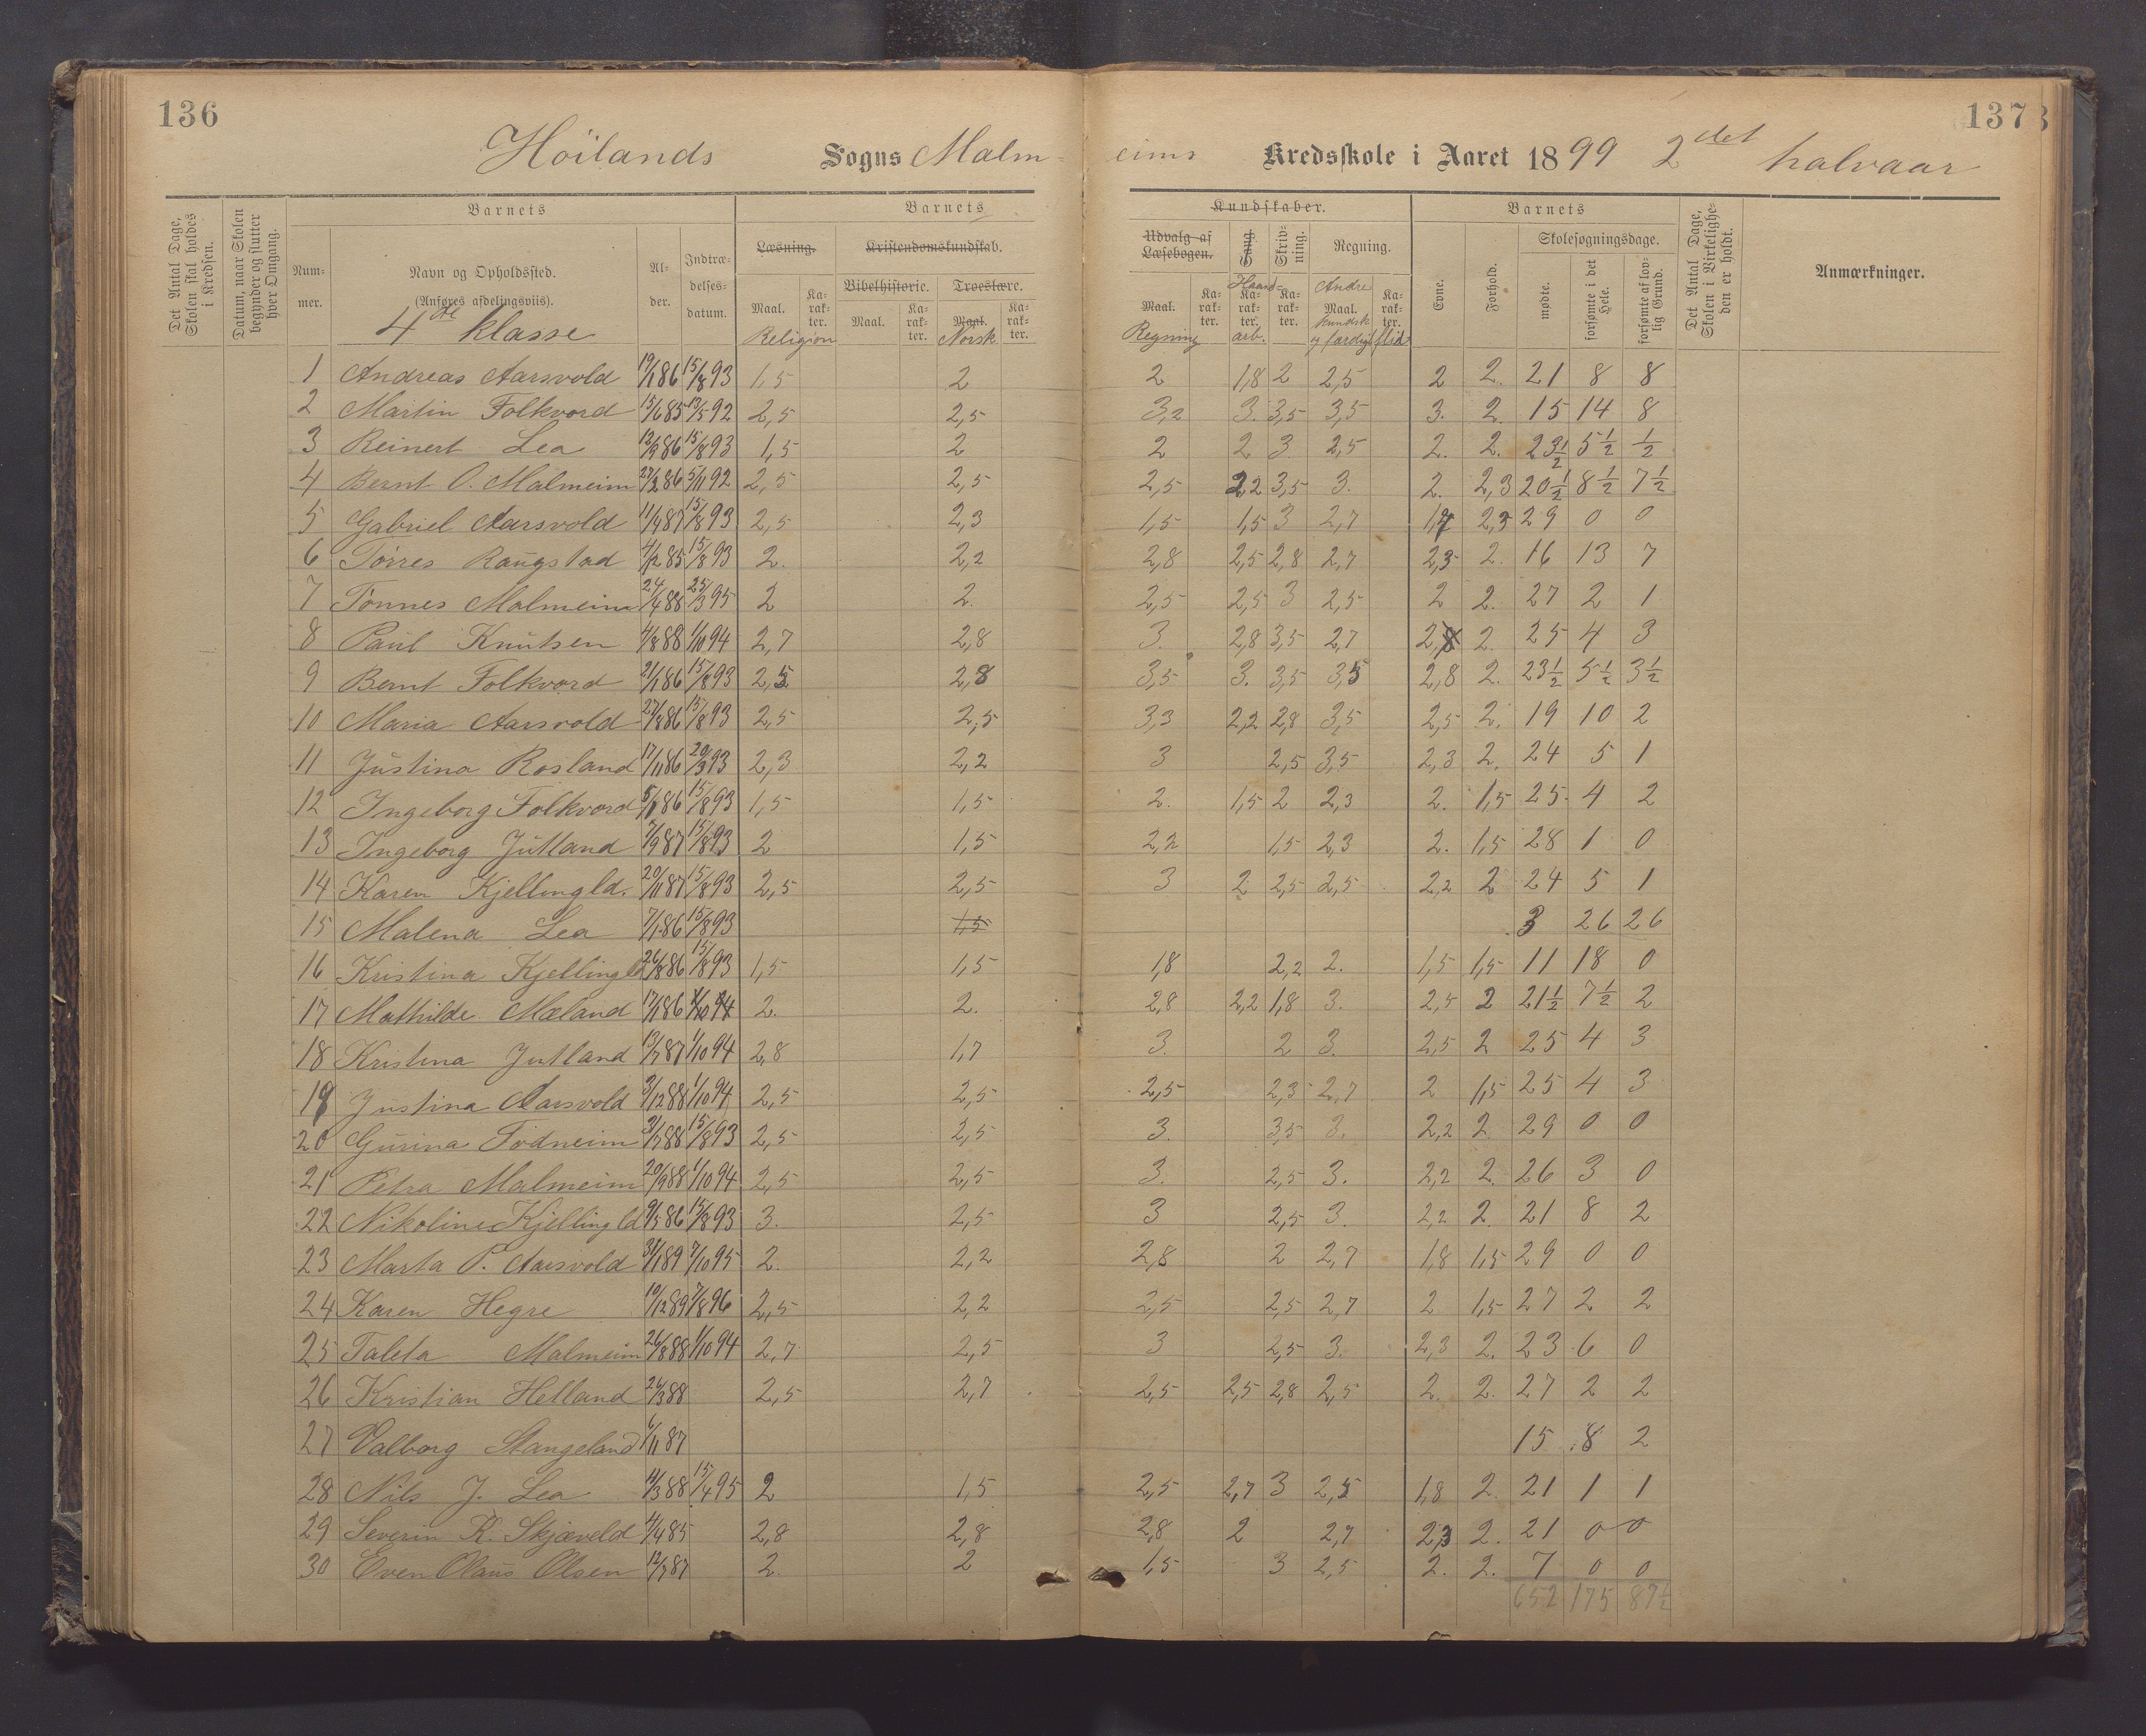 136
137
Höilands Sogns Malmeims Kredsskole i Aaret 1899 2det halvaar
Det Antal Dage, Skolen skal holdes i Kredsen.
Datum, naar Skolen begynder og slutter hver Omgang.
Barnets
Barnets
Kundskaber.
Barnets
Det Antal Dage, Skolen i Virkeligheden er holdt.
Anmærkninger.
Nummer.
Navn og Opholdssted.
(Anføres afdelingsviis).
4de klasse
Alder.
Indtrædelsesdatum.
Læsning.
Kristendomskundskab.
Bibelhistorie.
Troeslære.
Udvalg af Læsebogen.
Sang.
Skrivning.
Regning.
Evne.
Forhold.
Skolesøgningsdage.
mødte.
forsømte i det Hele.
forsømte af lovlig Grund.
Maal. Karakter. Maal. Karakter. Maal. Karakter. Maal. Karakter. Karakter. Karakter. Maal. Karakter.
Religion Norsk Regning Haandarb. Andre kundsk og færdigh flid
1 Andreas Aarsvold 19/1 86 15/8 93 1,5 2 2 1,8 2 2,5 2 2. 21 8 8
2 Martin Folkvord 15/6 85 13/5 92 2,5 2,5 3,2 3. 3,5 3,5 3. 2. 15 14 8
3 Reinert Lea 12/9 86 15/8 93 1,5 2 2 2 3. 2,5 2. 2. 23 1/2 5 1/2 1/2
4 Bernt O. Malmeim 27/2 86 5/11 92 2,5 2,5 2,5 2,2 3,5 3. 2. 2,3 20 1/2 8 1/2 7 1/2
5 Gabriel Aarsvold 11/9 87 15/8 93 2,5 2,3 1,5 1,5 3 2,7 1,7 2,3 29 0 0
6 Tørres Raugstad 4/12 85 15/8 93 2. 2,2 2,8 2,5 2,8 2,7 2,3 2. 16 13 7
7 Tønnes Malmeim 24/4 88 25/3 95 2 2. 2,5 2,5 3 2,5 2 2. 27 2 1
8 Paul Knutsen 4/8 88 1/10 94 2,7 2,8 3. 2,8 3,5 2,7 2,8 2. 25 4 3
9 Bernt Folkvord 21/1 86 15/8 93 2,5 2,8 3,5 3. 3,5 3,5 2,8 2. 23 1/2 5 1/2 3 1/2
10 Maria Aarsvold 27/8 86 15/8 93 2,5 2,5 3,3 2,2 2,8 3,5 2,5 2. 19 10 2
11 Justina Rosland 17/11 86 20/3 93 2,3 2,2 3 2,5 3,5 2,3 2. 24 5 1
12 Ingeborg Folkvord 5/1 86 15/8 93 1,5 1,5 2. 1,5 2 2,3 2. 1,5 25 4 2
13 Ingeborg Jutland 7/9 87 15/8 93 2 1,5 2,2 1,5 2,3 2. 1,5 28 1 0
14 Karen Kjellingld. 20/11 87 15/8 93 2,5 2,5 3 2 2,5 2,5 2,2 2 24 5 1
15 Malena Lea 7/1 86 15/8 93 1,5 3 26 26
16 Kristina Kjellingld 26/8 86 15/8 93 1,5 1,5 1,8 2,2 2. 1,5 1,5 11 18 0
17 Mathilde Mæland 17/1 86 1/10 94 2. 2. 2,8 2,2 1,8 3. 2,5 2 21 1/2 7 1/2 2
18 Kristina Jutland 13/7 87 1/10 94 2,8 1,7 3. 2 3. 2,5 2 25 4 3
19 Justina Aarsvold 3/12 88 1/10 94 2,5 2,5 2,5 2,3 2,7 2 1,5 25 4 3
20 Gurina Tødneim 31/7 88 15/8 93 2,5 2,5 3. 3,5 3. 2,2 2. 29 0 0
21 Petra Malmeim 20/9 88 1/10 94 2,5 2,5 3. 2,5 3. 2,2 2. 26 3 0
22 Nikoline Kjellingld 9/5 86 15/8 93 3. 2,5 3 2,5 3. 2,2 2. 21 8 2
23 Marta P. Aarsvold 31/1 89 7/10 95 2. 2,2 2,8 2 2,7 1,8 1,5 29 0 0
24 Karen Hegre 10/12 89 7/8 96 2,5 2,2 2,5 2,5 2,7 2 1,5 27 2 2
25 Taleta Malmeim 26/8 88 1/10 94 2,7 2,5 3 2,5 3. 2,3 2. 23 6 0
26 Kristian Helland 26/3 88 2,5 2,7 2,5 2,5 2,8 2,5 2. 2. 27 2 2
27 Valborg Stangeland 6/11 87 15 8 2
28 Nils J. Lea 11/3 88 15/4 95 2 1,5 2,5 2,7 3 2,5 1,8 2. 21 1 1
29 Severin K. Skjæveld 4/4 85 2,8 2,8 2,8 2 2,7 2,3 2. 21 0 0
30 Even Olaus Olsen 12/7 87 2. 2 1,5 3 2,5 2. 2. 7 0 0
652 175 87 1/2